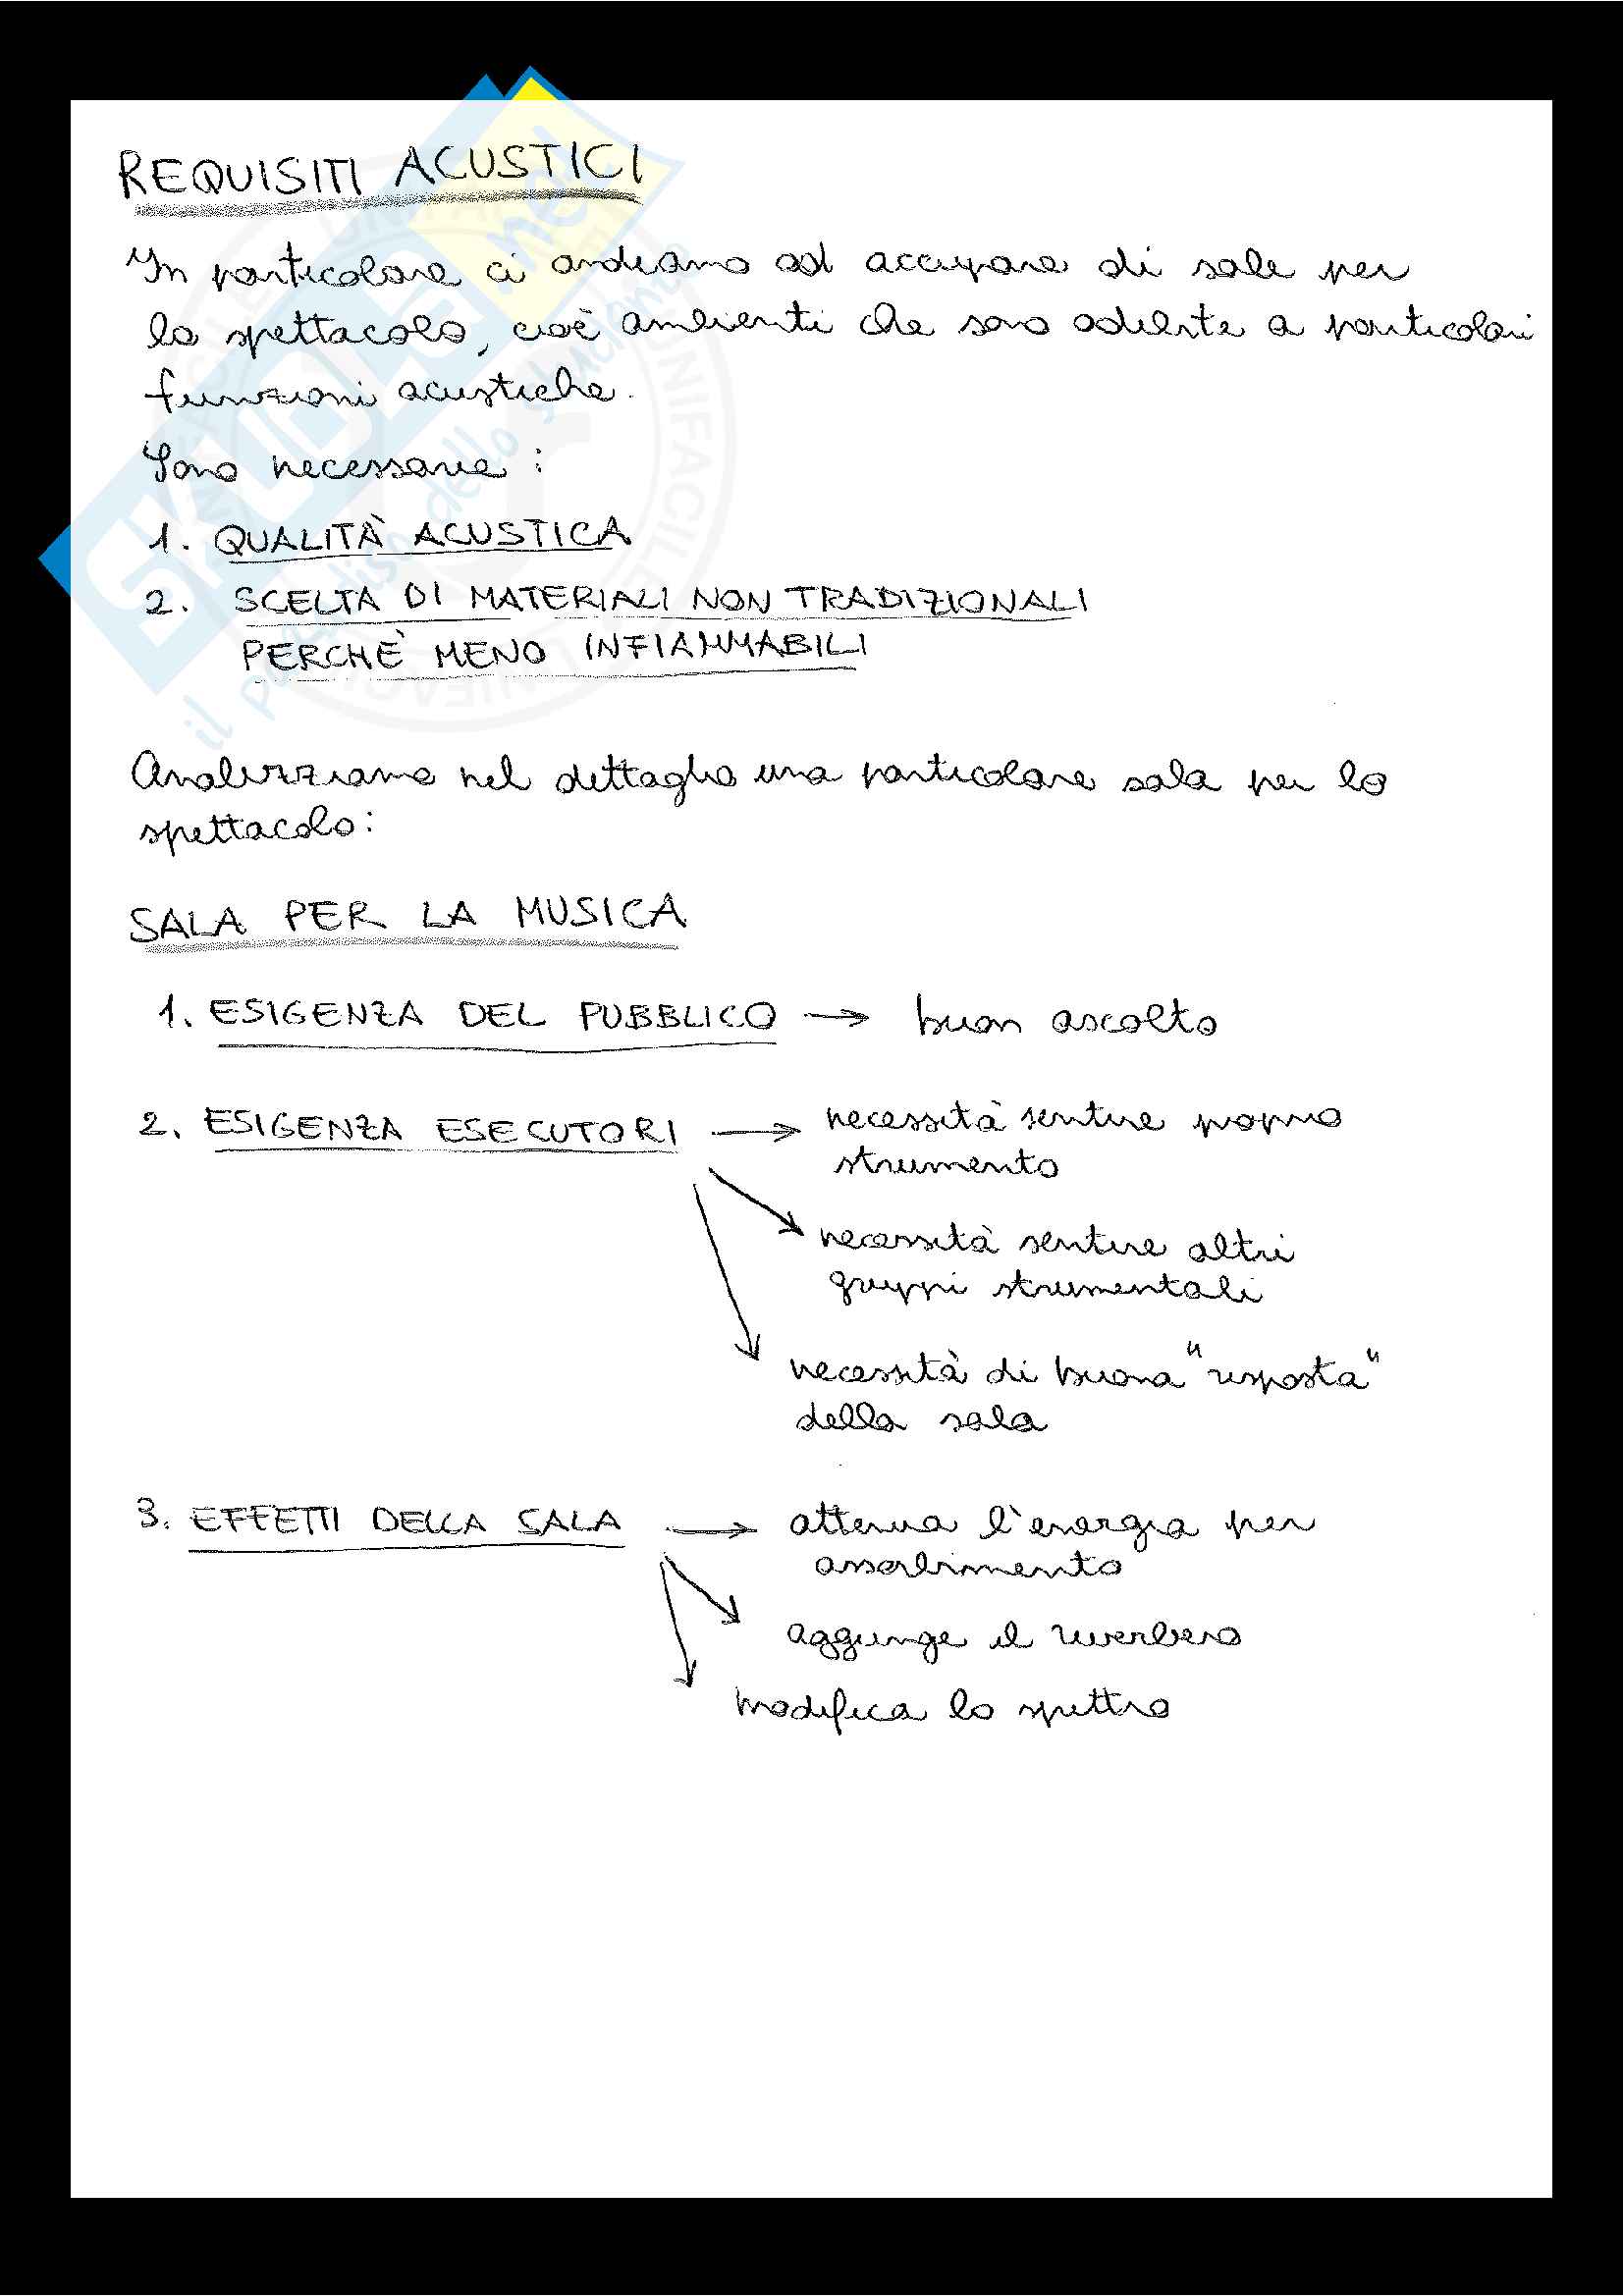 REQUISITI ACUSTICI
In particolare ci andiamo ad occupare di sale per
lo spettacolo, cioè ambienti che sono adibite a particolari
funzioni acustiche.
Sono necessarie :
1. QUALITÀ ACUSTICA
2. SCELTA DI MATERIALI NON TRADIZIONALI
PERCHÈ MENO INFIAMMABILI
Analizziamo nel dettaglio una particolare sala per lo
spettacolo:
SALA PER LA MUSICA
1. ESIGENZA DEL PUBBLICO → buon ascolto
2. ESIGENZA ESECUTORI → necessità sentire proprio
strumento
necessità sentire altri
gruppi strumentali
necessità di buona "risposta"
della sala
3. EFFETTI DELLA SALA → attenua l'energia per
assorbimento
aggiunge il riverbero
modifica lo spettro